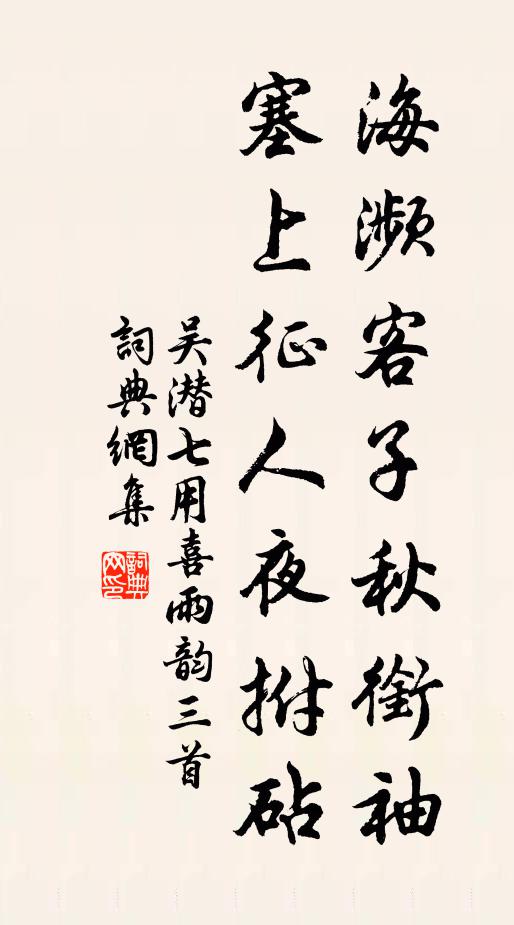 海濒客子秋衔袖
塞上征人夜拊砧
吴潜七用喜雨韵三首
詞典網集
詞典
网印